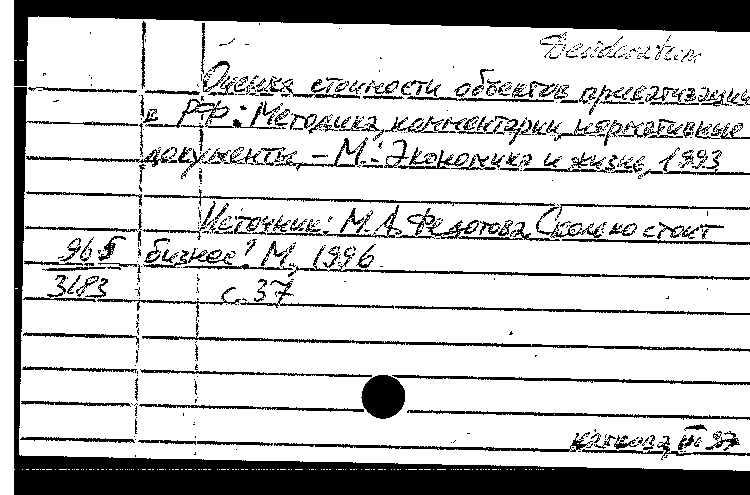 Desideratum
Оценка стоимости объектов приватизации
в РФ: Методика, комментарии, нормативные
документы. – М.: Экономика и жизнь, 1993
Источник: М.А. Федотова. Сколько стоит
96 5 бизнес? М., 1996.
3183 с. 37
III 97